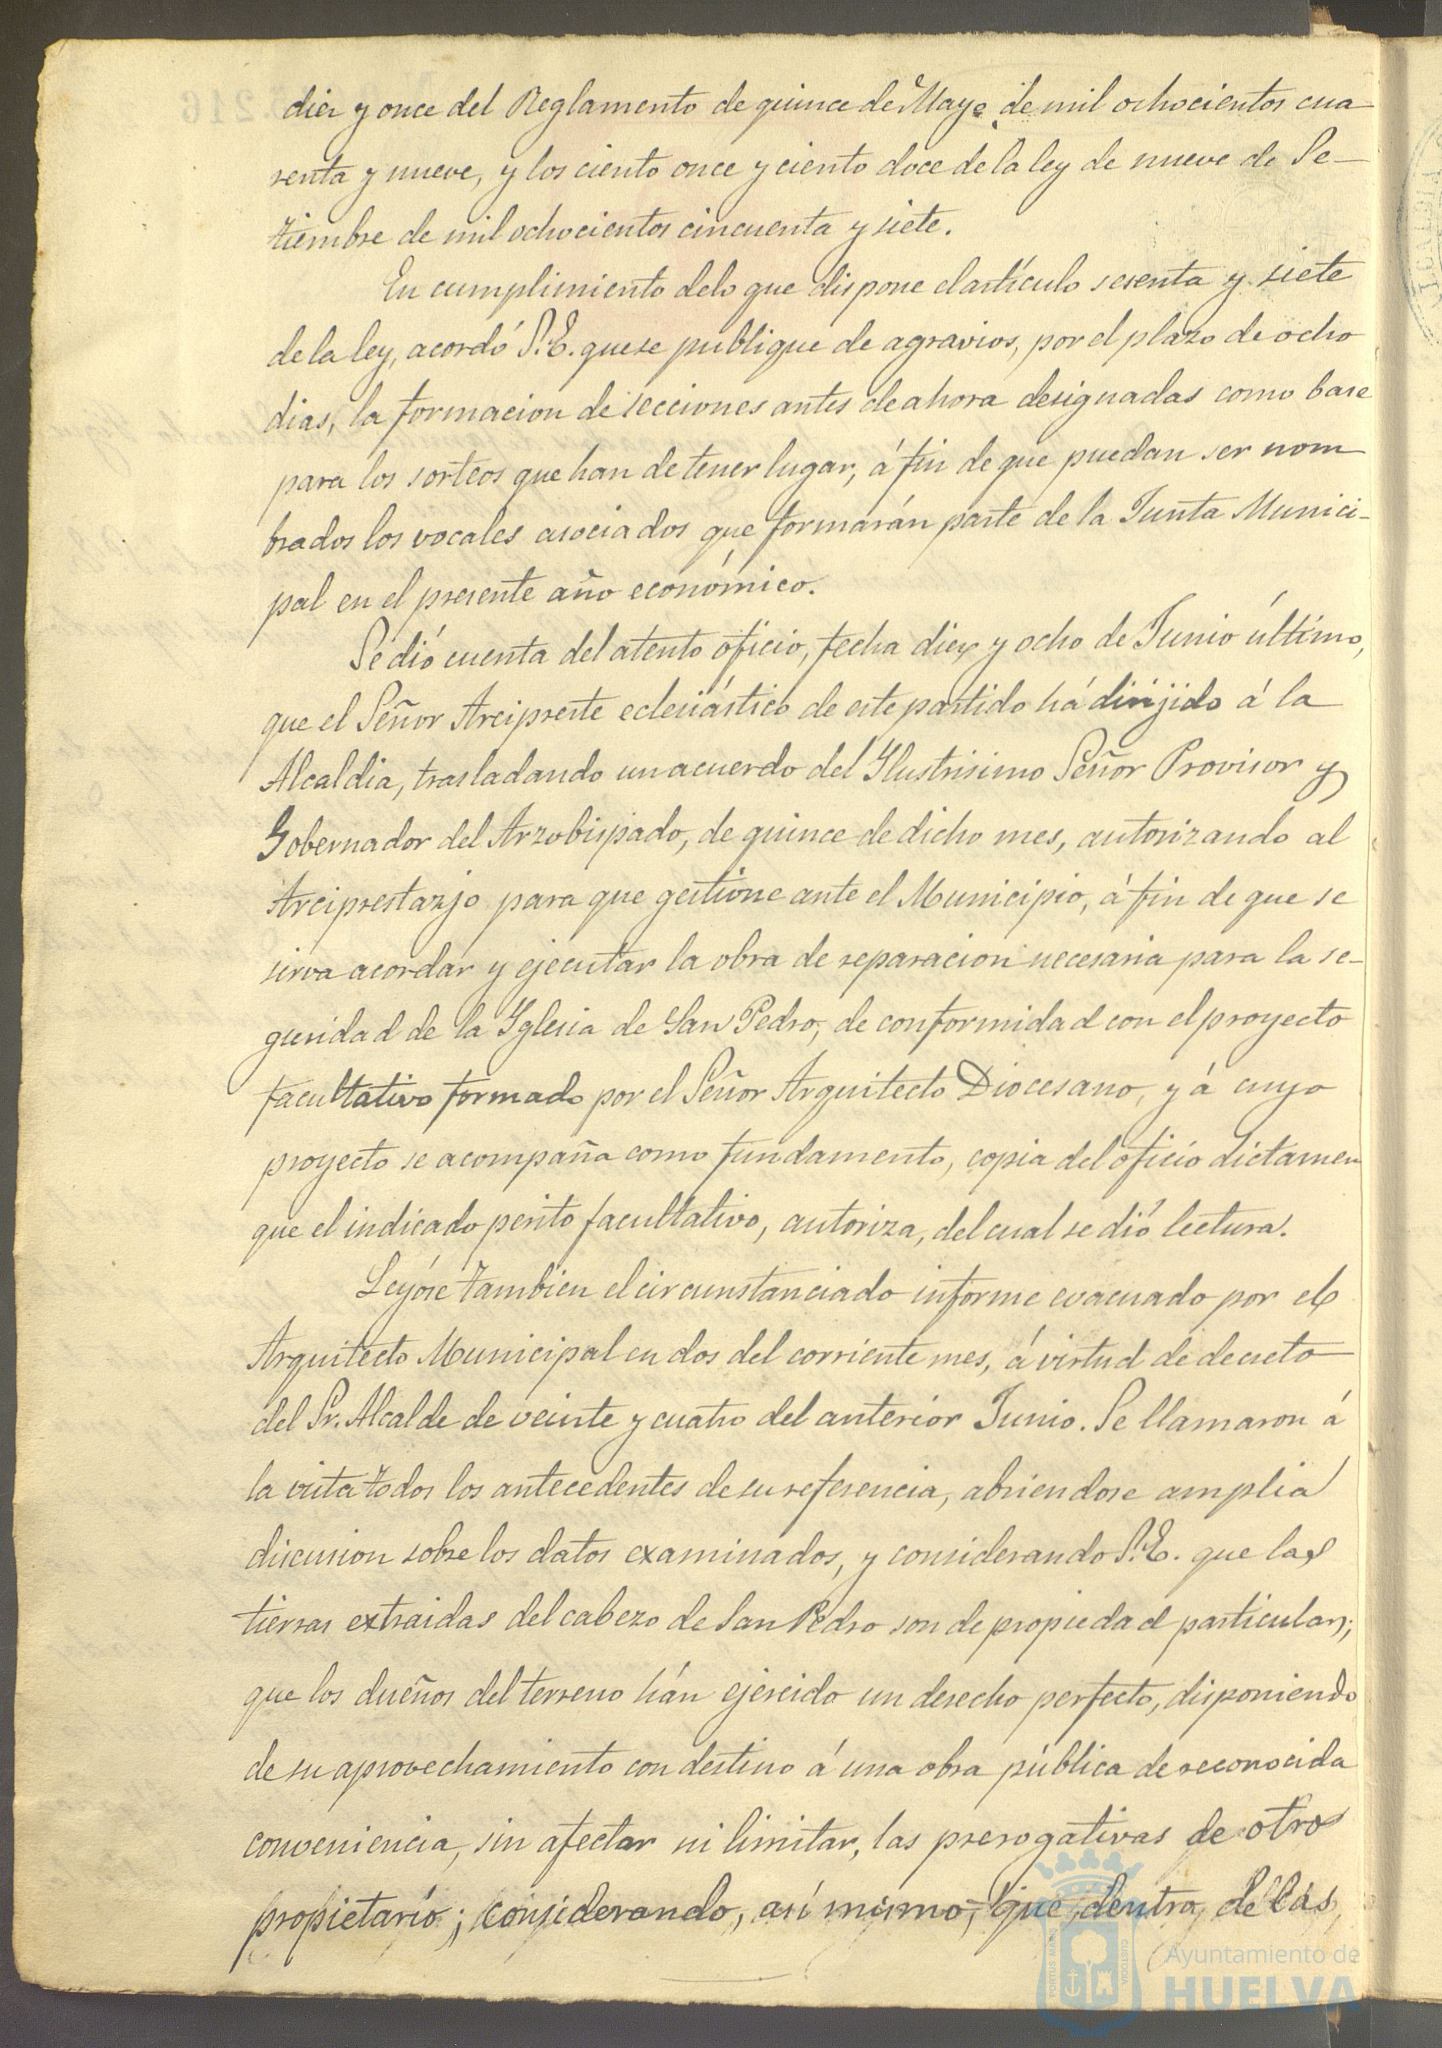 diez y once del Reglamento de quince de Mayo de mil ochocientos cua-
renta y nueve, y los ciento once y ciento doce de la ley de nueve de Se-
tiembre de mil ochocientos cincuenta y siete.
En cumplimiento de lo que dispone el artículo sesenta y siete
de la ley, acordó S.E. que se publique de agravios, por el plazo de ocho
dias, la formacion de secciones antes de ahora designadas como base
para los sorteos que han de tener lugar, á fin de que puedan ser nom
brados los vocales asociados que formarán parte de la Junta Munici-
pal en el presente año económico.
Se dió cuenta del atento oficio, fecha diez y ocho de Junio último,
que el Señor Arcipreste eclesiástico de este partido há dirijido á la
Alcaldia, trasladando un acuerdo del Ylustrisimo Señor Provisor y
Gobernador del Arzobispado, de quince de dicho mes, autorizando al
Arciprestazjo para que gestione ante el Municipio, á fin de que se
sirva acordar y ejecutar la obra de reparacion necesaria para la se-
guridad de la Yglesia de San Pedro, de conformidad con el proyecto
facultativo formado por el Señor Arquitecto Diocesano, y á cuyo
proyecto se acompaña como fundamento, copia del oficio dictamen
que el indicado perito facultativo, autoriza, del cual se dió lectura.
Leyóse tambien el circunstanciado informe evacuado por el
Arquitecto Municipal en dos del corriente mes, á virtud de decreto
del Sr. Alcalde de veinte y cuatro del anterior Junio. Se llamaron á
la vista todos los antecedentes de su referencia, abriendose amplia
discusion sobre los datos examinados, y considerando S.E. que las
tierras extraidas del cabezo de San Pedro son de propiedad particular;
que los dueños del terreno hán ejercido un derecho perfecto, disponiendo
de su aprovechamiento con destino á una obra pública de reconocida
conveniencia, sin afectar ni limitar, las prerogativas de otro
propietario; considerando, así mismo, que dentro de las
Ayuntamiento de
HUELVA
PORTUS MARIS
CUSTODIA